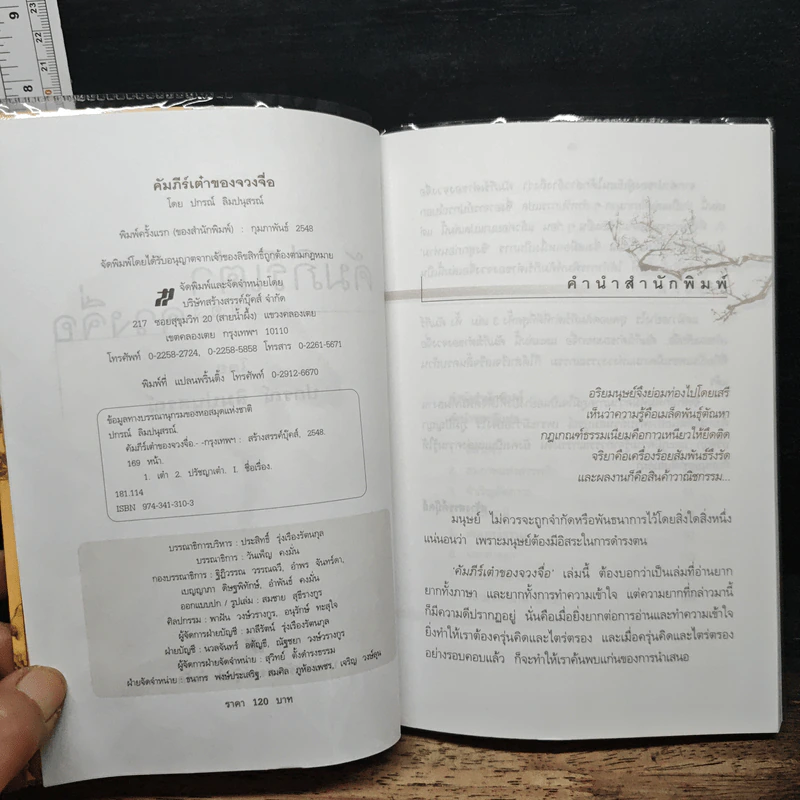 9
8
23
22
21
20
คัมภีร์เต๋าของจวงจื่อ
โดย ปกรณ์ ลิมปนุสรณ์
พิมพ์ครั้งแรก (ของสำนักพิมพ์) : กุมภาพันธ์ 2548
จัดพิมพ์โดยได้รับอนุญาตจากเจ้าของลิขสิทธิ์ถูกต้องตามกฎหมาย
จัดพิมพ์และจัดจำหน่ายโดย
บริษัทสร้างสรรค์บุ๊คส์ จำกัด
217 ซอยสุขุมวิท 20 (สายน้ำผึ้ง) แขวงคลองเตย
เขตคลองเตย กรุงเทพฯ 10110
โทรศัพท์ 0-2258-2724, 0-2258-5858 โทรสาร 0-2261-5671
พิมพ์ที่ แปลนพริ้นติ้ง โทรศัพท์ 0-2912-6670
ข้อมูลทางบรรณานุกรมของหอสมุดแห่งชาติ
ปกรณ์ ลิมปนุสรณ์.
คัมภีร์เต๋าของจวงจื่อ.- -กรุงเทพฯ : สร้างสรรค์บุ๊คส์, 2548.
169 หน้า.
1. เต๋า 2. ปรัชญาเต๋า. I. ชื่อเรื่อง.
181.114
ISBN 974-341-310-3
บรรณาธิการบริหาร : ประสิทธิ์ รุ่งเรืองรัตนกุล
บรรณาธิการ : วันเพ็ญ คงมั่น
กองบรรณาธิการ : ฐิฎิวรรณ วรรณตรี, อำพร จันทร์ดา,
เบญญาภา ดิษฐพิทักษ์, อำพันธ์ คงมั่น
ออกแบบปก / รูปเล่ม : สมชาย สุธีรางกูร
ศิลปกรรม : พาฝัน วงษ์วรางกูร, อนุรักษ์ ทะสุใจ
ผู้จัดการฝ่ายบัญชี : มาลีรัตน์ รุ่งเรืองรัตนกุล
ฝ่ายบัญชี : นวลจันทร์ อตัญถี, ณัฐชยา วงษ์วรางกูร
ผู้จัดการฝ่ายจัดจำหน่าย : สุวิทย์ ตั้งดำรงธรรม
ฝ่ายจัดจำหน่าย : ธนากร พงษ์ประเสริฐ, สมศิล ภูห้องเพชร, เจริญ
ราคา 120 บาท
คำนำสำนักพิมพ์
อริยมนุษย์จึงย่อมท่องไปโดยเสรี
เห็นว่าความรู้คือเมล็ดพันธุ์ตัณหา
กฎเกณฑ์ธรรมเนียมคือกาวเหนียวให้ยึดติด
จริยาคือเครื่องร้อยสัมพันธ์รึงรัด
และผลงานก็คือสินค้าวาณิชกรรม...
มนุษย์ ไม่ควรจะถูกจำกัดหรือพันธนาการไว้โดยสิ่งใดสิ่งหนึ่ง
แน่นอนว่า เพราะมนุษย์ต้องมีอิสระในการดำรงตน
'คัมภีร์เต๋าของจวงจื่อ' เล่มนี้ ต้องบอกว่าเป็นเล่มที่อ่านยาก
ยากทั้งภาษา และยากทั้งการทำความเข้าใจ แต่ความยากที่กล่าวมานี้
ก็มีความดีปรากฏอยู่ นั่นคือเมื่อยิ่งยากต่อการอ่านและทำความเข้าใจ
ยิ่งทำให้เราต้องครุ่นคิดและไตร่ตรอง และเมื่อครุ่นคิดและไตร่ตรอง
อย่างรอบคอบแล้ว ก็จะทำให้เราค้นพบแก่นของการนำเสนอ